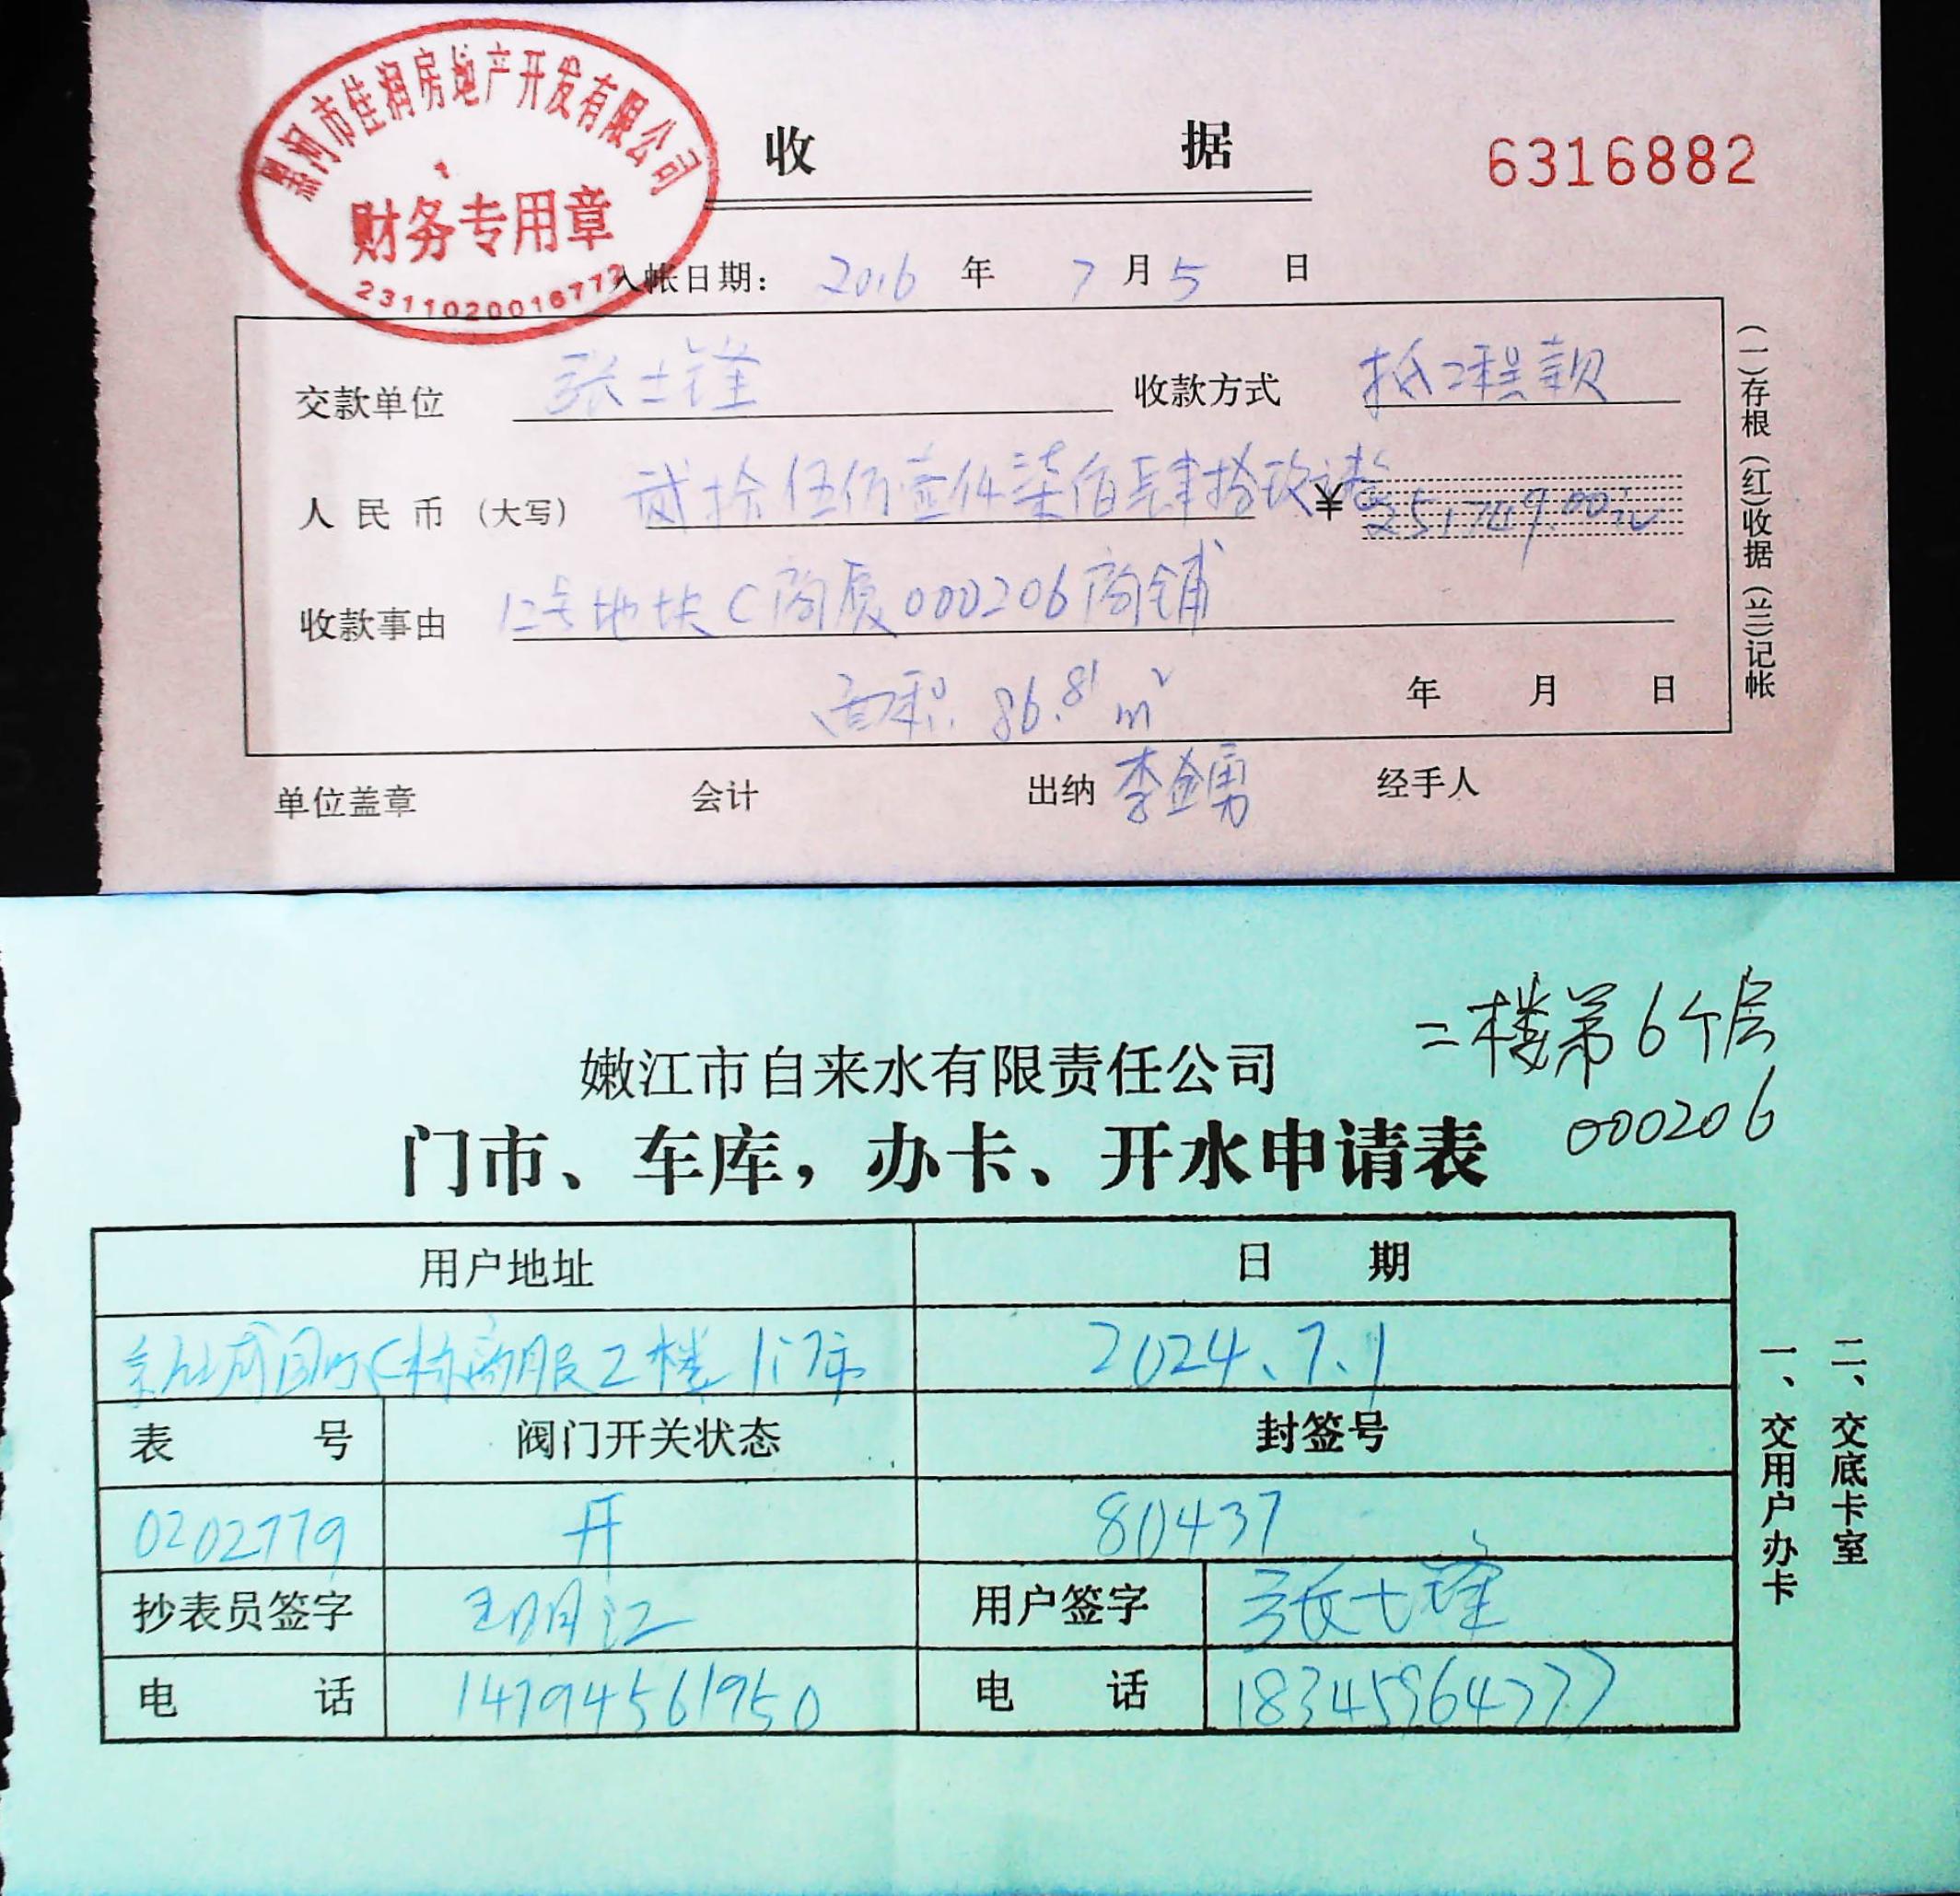 黑河市佳润房地产开发有限公司
1
财务专用章
2311020016772
收 据
6316882
入帐日期： 2016 年 7 月 5 日
交款单位 张士锋 收款方式 抵工程款
人民币（大写） 贰拾伍仟壹仟柒佰肆拾玖元整 ￥251749.00元
收款事由 12号地块C商厦000206商铺
面积 86.81m²
年 月 日
单位盖章 会计 出纳 李金勇 经手人
(一)存根 (红)收据 (兰)记帐
二楼第6个层
000206
嫩江市自来水有限责任公司
门市、车库，办卡、开水申请表
用户地址 日 期
C栋商服2楼1门市 2024.7.1
表 号 阀门开关状态 封签号
0202779 开 80437
抄表员签字 王明江 用户签字 张士锋
电 话 14794561950 电 话 18345964777
一、交用户办卡
二、交底卡室